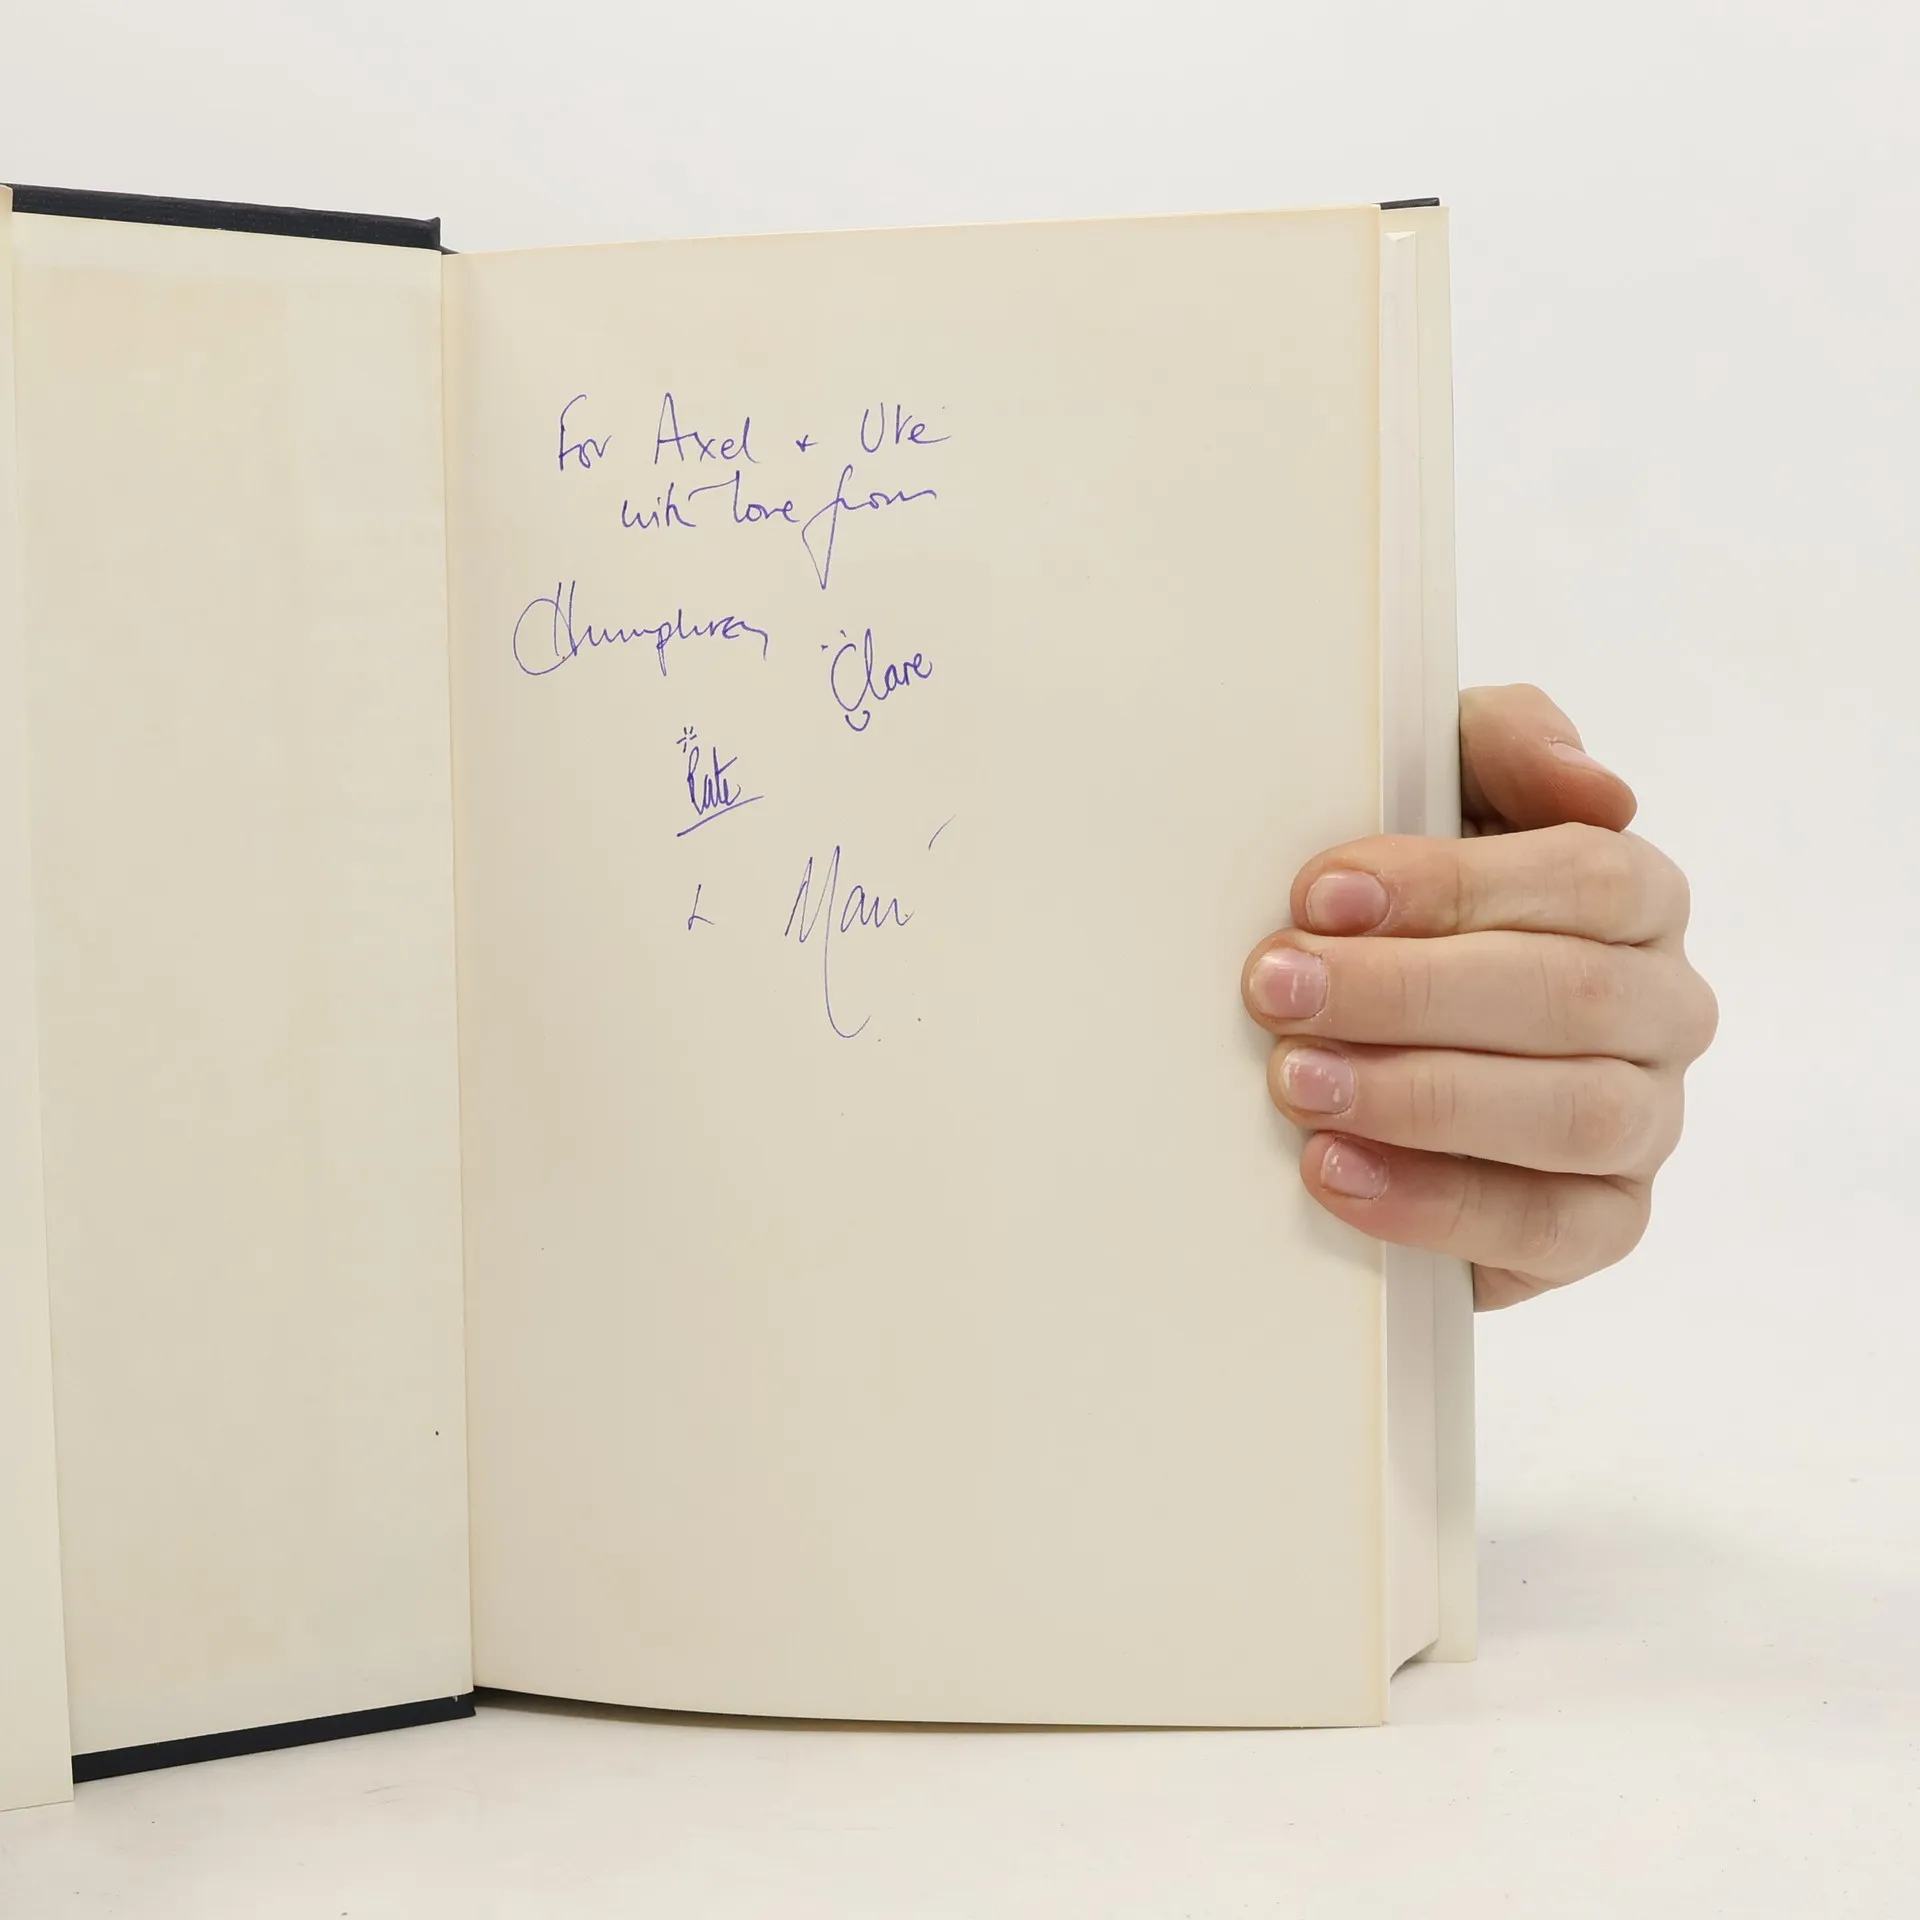 For Axel + Ute
with love from
Humphrey
Clare
Kate
+